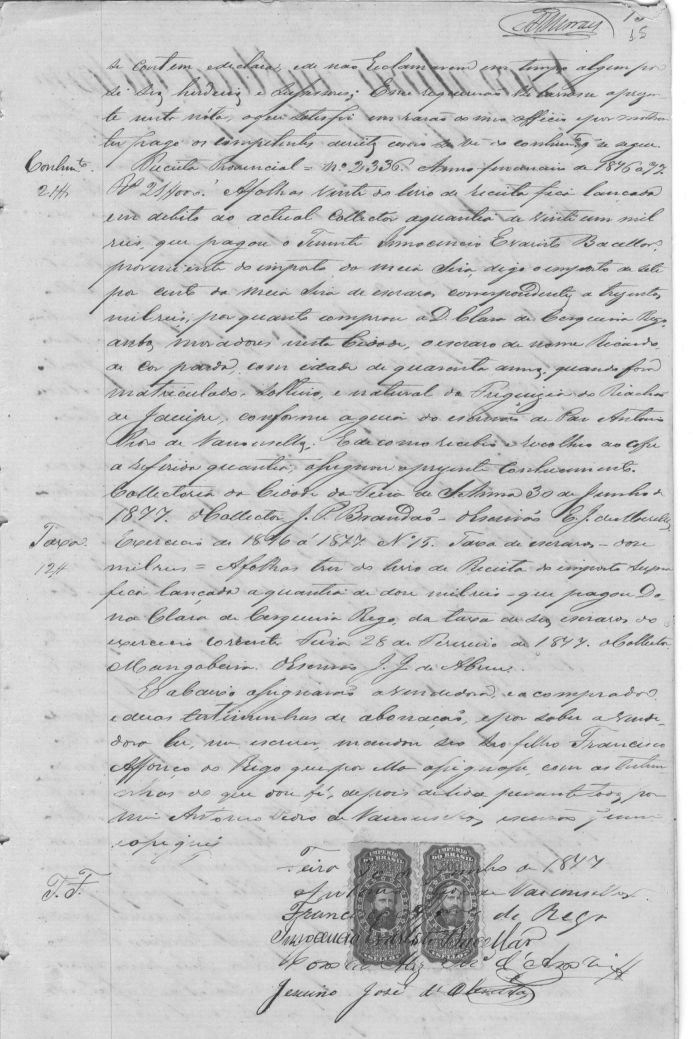 se contem e declara, e de não reclamarem em tempo algum por
si seus herdeiros e
te nesta nota, o que satisfiz em razão do meu officio e por
ter pago os competentes direitos como se vê do conhecimento se segue.
Conhecimto.
21#
Receita Provincial = Nº 2,336. Anno financeiro de 1876 a 77.
Rs 21#000. A folhas vinte do livro de receita fica lançada
em debito ao actual Collector a quantia de vinte um mil
reis, que pagou o Tenente Innocencio Evaristo Bacellar,
proveniente do imposto da meia Siza, digo o imposto de sete
por cento da meia Siza de escravos, correspondente a trezentos
mil reis, por quanto comprou a D. Clara de Cerqueira Rego,
ambos moradores nesta Cidade, o escravo de nome Ricardo
de cor parda, com idade de quarenta annos, quando foi
matriculado, solteiro, e natural da Freguezia do Riachão
de Jacuipe, conforme a guia do escrivão de Paz Antonio
de Vasconcellos. E de como recebeu e recolheu ao cofre
a referida quantia, assignou o presente conhecimento.
Collectoria da Cidade da Feira de Sta Anna 30 de Junho de
1877. O Collector J. P. Brandão. O escrivão C. J. de
Taxa
12#
Exercicio de 1876 á 1877. Nº 15. Taxa de escravos - doze
mil reis = A folhas trez do livro de Receita do imposto supra
fica lançada a quantia de doze mil reis - que pagou Do-
na Clara de Cerqueira Rego, da taxa de seus escravos do
exercicio corrente. Feira 28 de Fevereiro de 1877. O Collector
Mangabeira. O escrivão J. J. de Abreu.
E abaixo assignarão a vendedora, e o comprador
e duas testimunhas de abonação, e por não saber a vende-
dora ler, nem escrever, mandou seu filho Francisco
Affonço do Rego que por ella assignasse, com as testimu-
nhas do que dou fé, depois de lida perante todos, por
mim Antonio Pedro de Vasconcellos, escrivão que
assignei
T. F.
Feira de Junho de 1877
de Vasconcellos
Francisco do Rego
Innocencio Evaristo Bacellar
Jesuino José d'
IMPERIO
DO BRASIL
IMPERIO
DO BRASIL